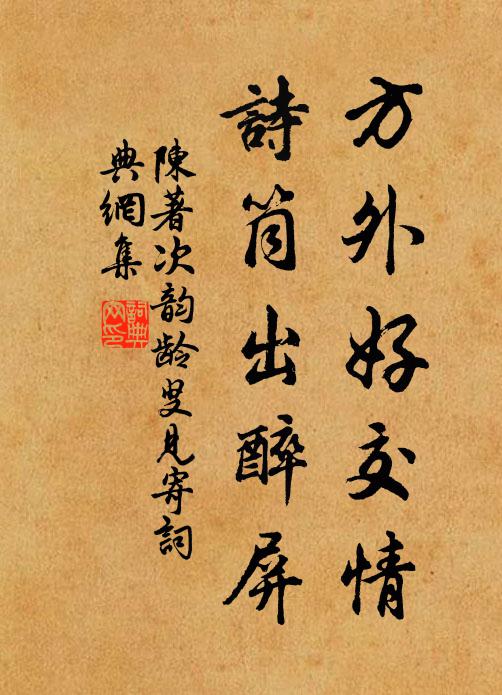 方外好交情
詩筒出醉屏
陳著次韵龄叟見寄詞
典網集
詞典
网印